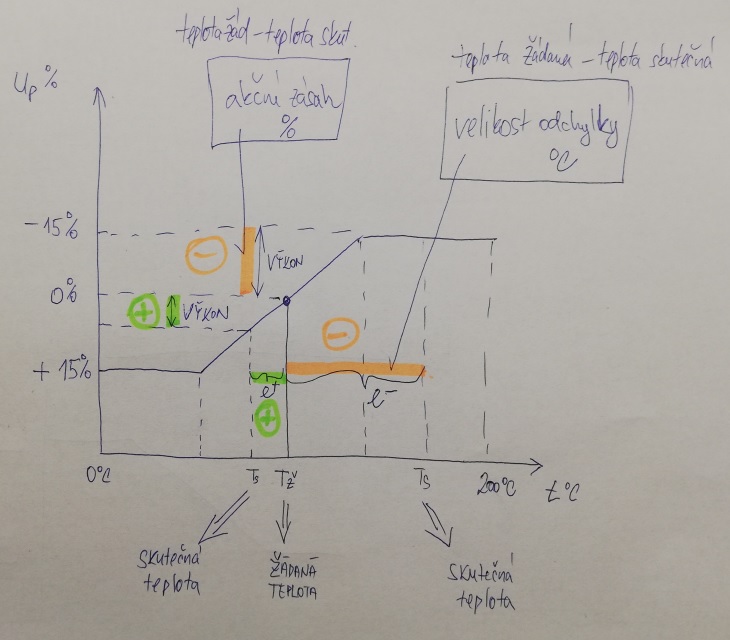 teplota žád - teplota skut.
teplota žádaná - teplota skutečná
Up %
akční zásah
%
velikost odchylky
°C
-15%
VÝKON
-
0%
+
VÝKON
-
+ 15%
e+
e-
+
0°C
Ts
Tž
Ts
200°C
t °C
skutečná
teplota
ŽÁDANÁ
TEPLOTA
skutečná
teplota